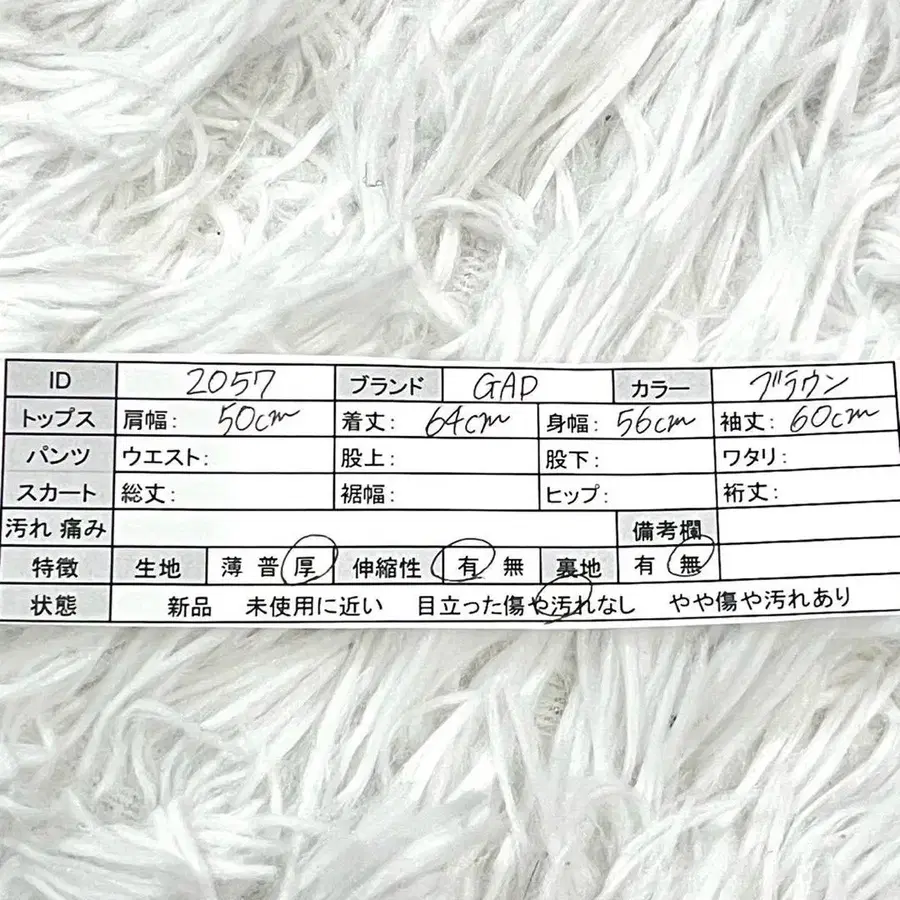 ID 2057 ブランド GAP カラー ブラウン
トップス 肩幅: 50cm 着丈: 64cm 身幅: 56cm 袖丈: 60cm
パンツ ウエスト: 股上: 股下: ワタリ:
スカート 総丈: 裾幅: ヒップ: 裄丈:
汚れ 痛み 備考欄
特徴 生地 薄 普 厚 伸縮性 有 無 裏地 有 無
状態 新品 未使用に近い 目立った傷や汚れなし やや傷や汚れあり